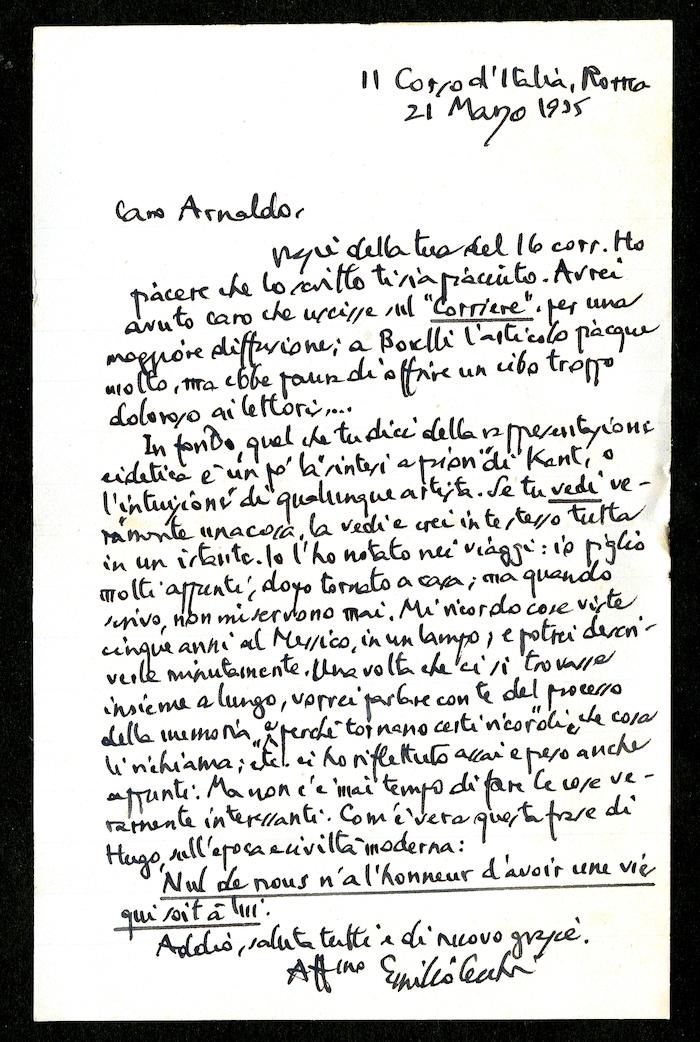 11 Corso d'Italia, Roma
21 Marzo 1935
Caro Arnaldo,
grazie della tua del 16 corr. Ho
piacere che lo scritto ti sia piaciuto. Avrei
avuto caro che uscisse sul "Corriere", per una
maggiore diffusione; a Borelli l'articolo piacque
molto, ma ebbe paura di offrire un cibo troppo
doloroso ai lettori....
In fondo, quel che tu dici della rappresentazione
eidetica è un po' la "sintesi a priori" di Kant, o
l'"intuizione" di qualunque artista. Se tu vedi ve-
ramente una cosa, la vedi e crei in te stesso tutta
in un istante. Io l'ho notato nei viaggi: io piglio
molti appunti, dopo tornato a casa; ma quando
scrivo, non mi servono mai. Mi ricordo cose viste
cinque anni al Messico, in un lampo; e potrei descri-
verle minutamente. Una volta che ci si trovasse
insieme a lungo, vorrei parlare con te del processo
della memoria, e "perché tornano certi ricordi e che cosa
li richiama"; etc. ci ho riflettuto assai e preso anche
appunti. Ma non c'è mai tempo di fare le cose ve-
ramente interessanti. Com'è vera questa frase di
Hugo, sull'epoca e civiltà moderna:
Nul de nous n'a l'honneur d'avoir une vie
qui soit à lui.
Addio, saluta tutti e di nuovo grazie.
Affmo Emilio Cecchi